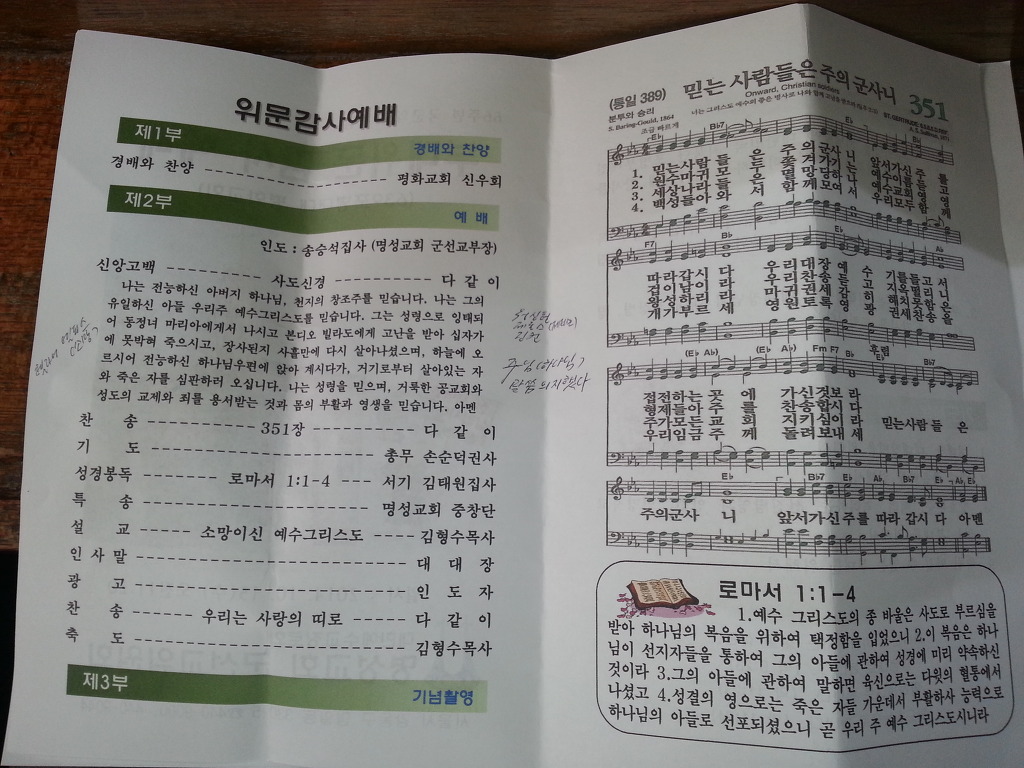 위문감사예배
제1부 경배와 찬양
경배와 찬양 평화교회 신우회
제2부 예 배
인도 : 송승석집사 (명성교회 군선교부장)
신앙고백 사도신경 다 같 이
나는 전능하신 아버지 하나님, 천지의 창조주를 믿습니다. 나는 그의
유일하신 아들 우리주 예수그리스도를 믿습니다. 그는 성령으로 잉태되
어 동정녀 마리아에게서 나시고 본디오 빌라도에게 고난을 받아 십자가
에 못박혀 죽으시고, 장사된지 사흘만에 다시 살아나셨으며, 하늘에 오
르시어 전능하신 하나님우편에 앉아 계시다가, 거기로부터 살아있는 자
와 죽은 자를 심판하러 오십니다. 나는 성령을 믿으며, 거룩한 공교회와
성도의 교제와 죄를 용서받는 것과 몸의 부활과 영생을 믿습니다. 아멘
찬 송 351장 다 같 이
기 도 총무 손순덕권사
성경봉독 로마서 1:1-4 서기 김태원집사
특 송 명성교회 중창단
설 교 소망이신 예수그리스도 김형수목사
인 사 말 대 대 장
광 고 인 도 자
찬 송 우리는 사랑의 띠로 다 같 이
축 도 김형수목사
제3부 기념촬영
믿는 사람들은 주의 군사니 351
(통일 389) Onward, Christian soldiers
분투와 승리
S. Baring-Gould, 1864
조금 빠르게
1. 믿는사람 들 은 주 의 군사 니 앞서가신 주 를
2. 원수마귀 모 두 쫓 겨 가기 는 예수이름 듣 고
3. 세상나라 들 은 멸 망 당하 나 예수교회 영
4. 백성들아 와 서 함 께 모여 서 우리모두 함 께
따라갑시 다 우리대장 예 수 기를들고 서
겁이남이 라 우리찬송 듣 고 지옥떨리 니
왕성하리 라 마귀권세 감 히 해치못함 은
개가부르 세 영원토록 영 광 권세찬송 을
후렴
접전하는 곳 에 가신것보 라
형제들아 주 를 찬송합시 다
주가모든 교 회 지키심이 라 믿는사람 들 은
우리임금 주 께 돌려보내 세
주의군사 니 앞서가신 주를 따라 갑시 다 아멘
로마서 1:1-4
1.예수 그리스도의 종 바울은 사도로 부르심을
받아 하나님의 복음을 위하여 택정함을 입었으니 2.이 복음은 하나
님이 선지자들을 통하여 그의 아들에 관하여 성경에 미리 약속하신
것이라 3.그의 아들에 관하여 말하면 육신으로는 다윗의 혈통에서
나셨고 4.성결의 영으로는 죽은 자들 가운데서 부활하사 능력으로
하나님의 아들로 선포되셨으니 곧 우리 주 예수 그리스도시니라